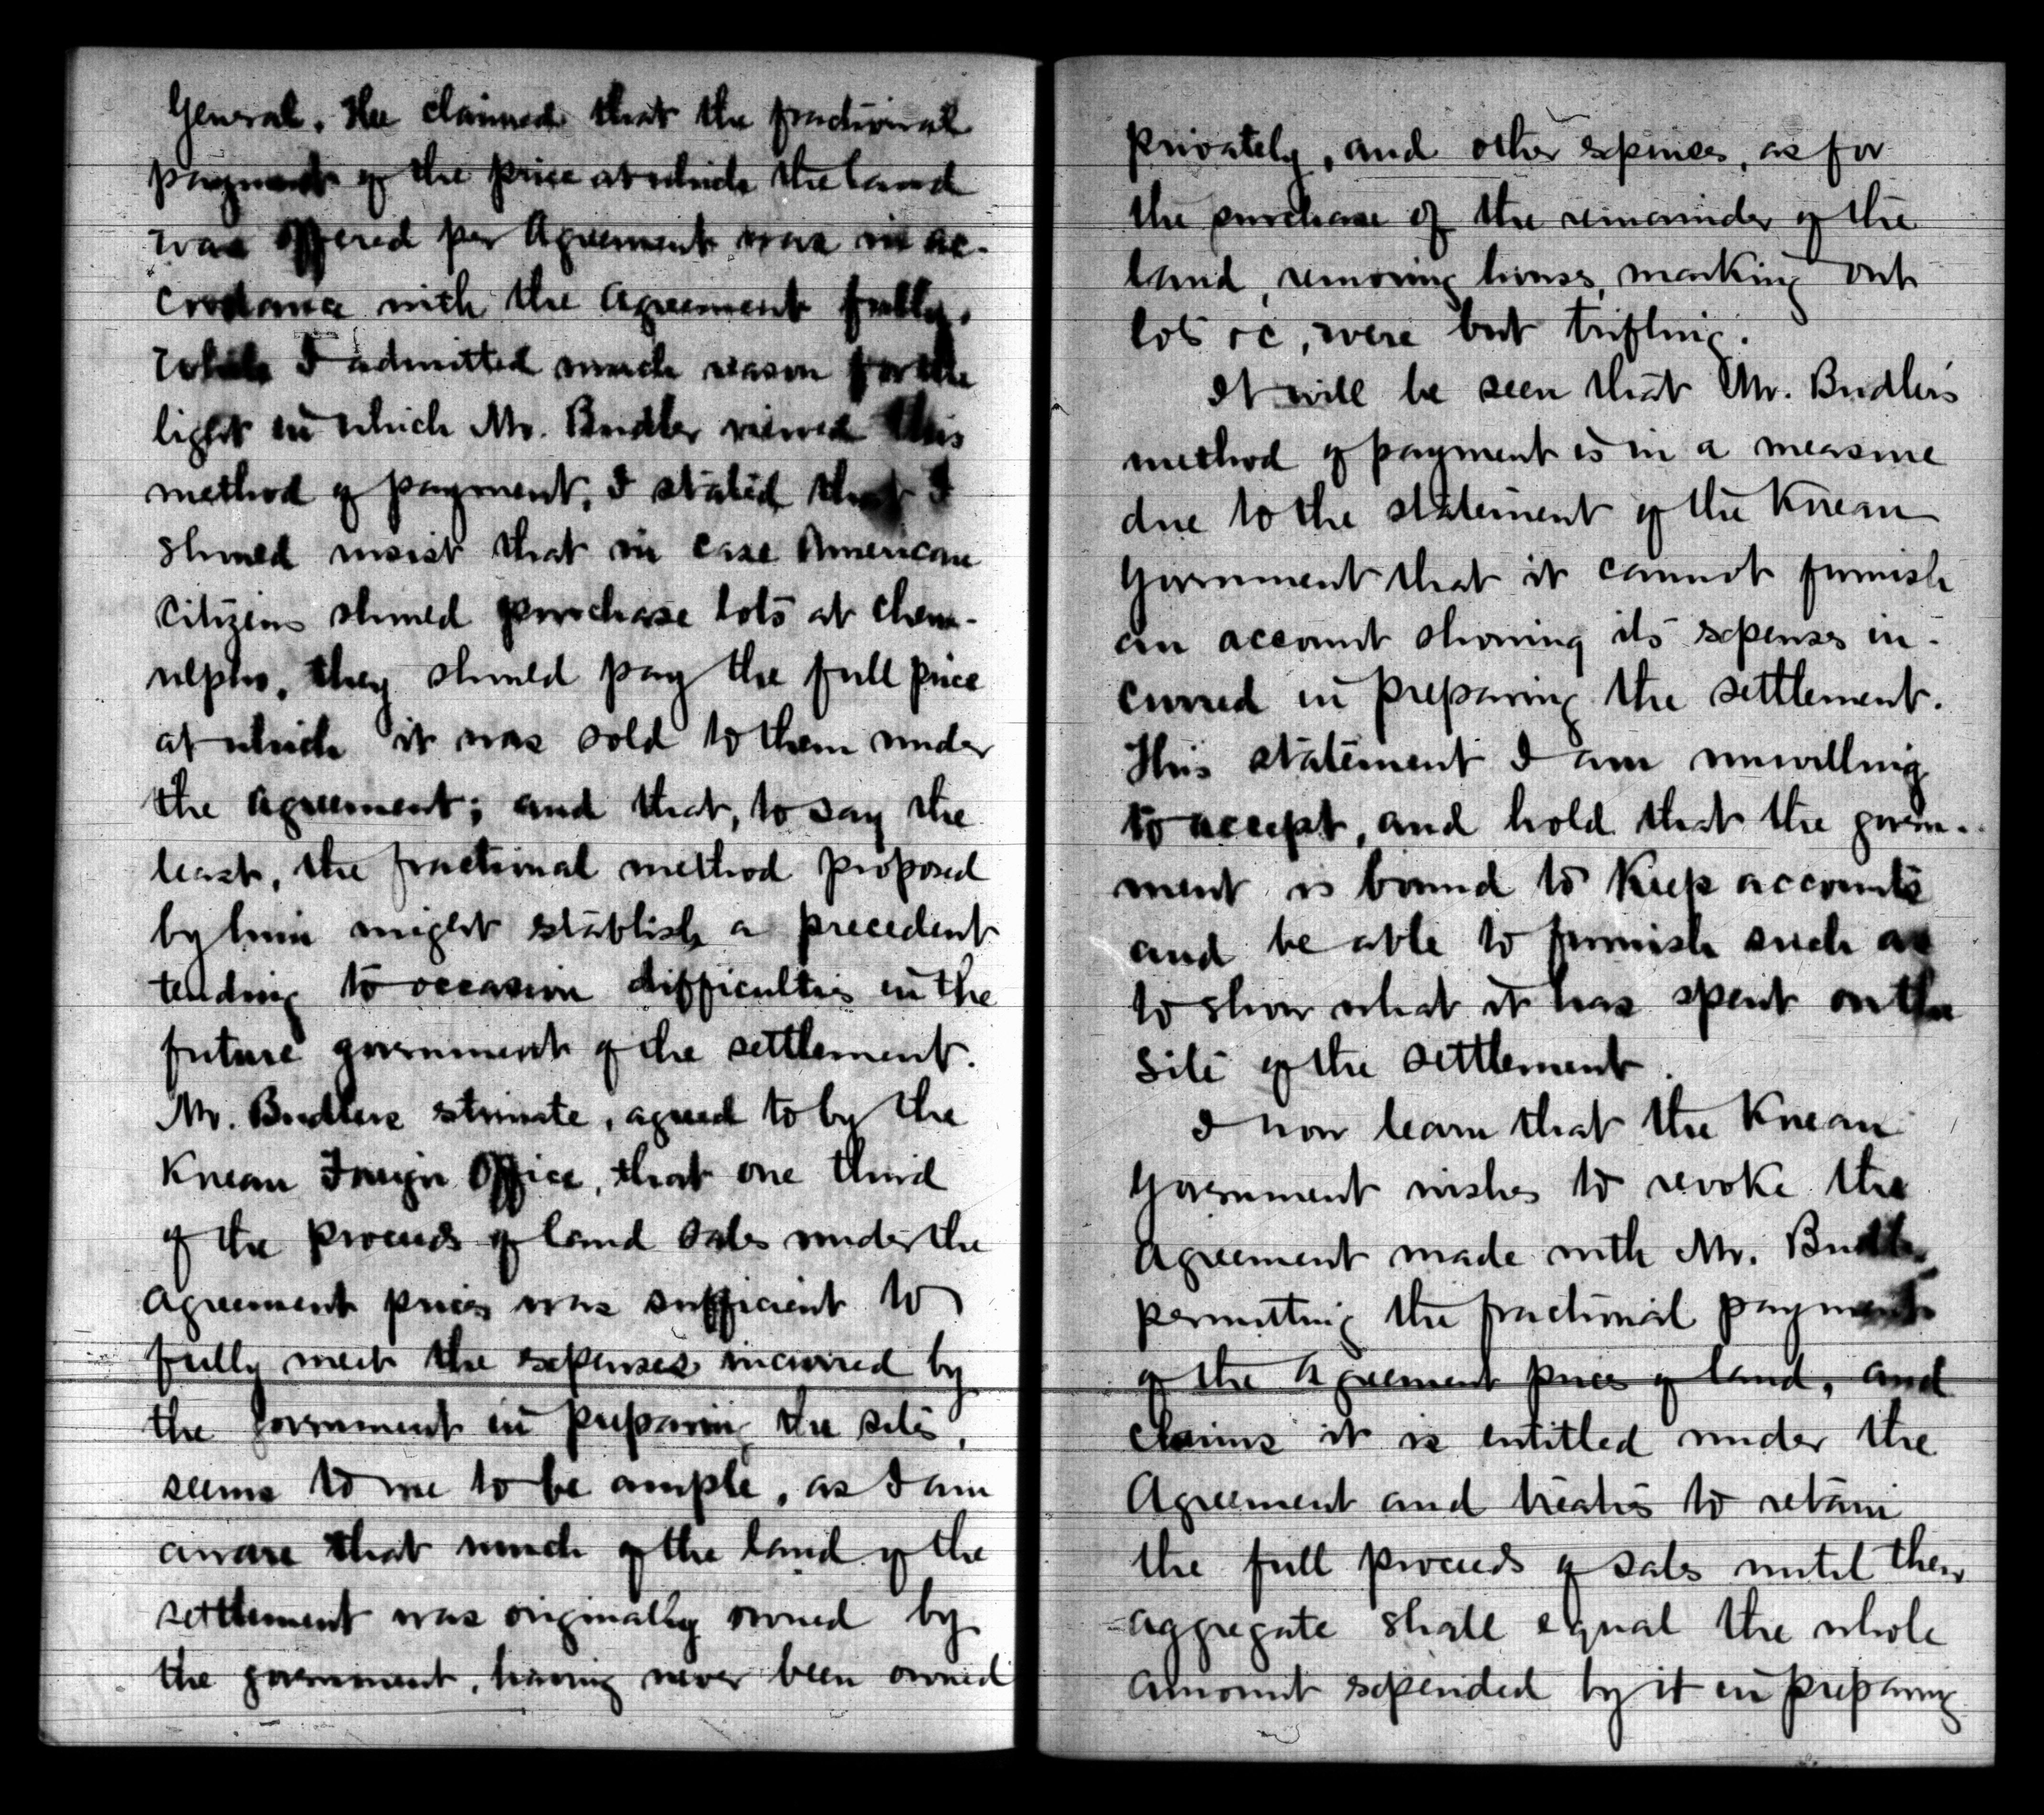 General. He claimed that the fractional
payment of the price at which the land
was offered per Agreement was in ac-
cordance with the Agreement fully.
While I admitted much reason for the
light in which Mr. Budler viewed this
method of payment, I stated that I
should insist that in case American
Citizens should purchase lots at Chem-
ulpho, they should pay the full price
at which it was sold to them under
the Agreement; and that, to say the
least, the fractional method proposed
by him might establish a precedent
tending to occasion difficulties in the
future government of the settlement.
Mr. Budlers estimate, agreed to by the
Korean Foreign Office, that one third
of the proceeds of land sales under the
Agreement prices was sufficient to
fully meet the expenses incurred by
the government in preparing the site,
seems to me to be ample, as I am
aware that much of the land of the
settlement was originally owned by
the government, having never been owned
privately, and other expenses, as for
the purchase of the remainder of the
land, removing houses, marking out
lots &c, were but trifling.
It will be seen that Mr. Budler's
method of payment is in a measure
due to the statement of the Korean
Government that it cannot furnish
an account showing its expenses in-
curred in preparing the settlement.
This statement I am unwilling
to accept, and hold that the govern-
ment is bound to keep accounts
and be able to furnish such as
to show what it has spent on the
site of the settlement.
I now learn that the Korean
Government wishes to revoke the
agreement made with Mr. Budler
permitting the fractional payment
of the Agreement price of land, and
claims it is entitled under the
Agreement and treaties to retain
the full proceeds of sales until their
aggregate shall equal the whole
amount expended by it in preparing